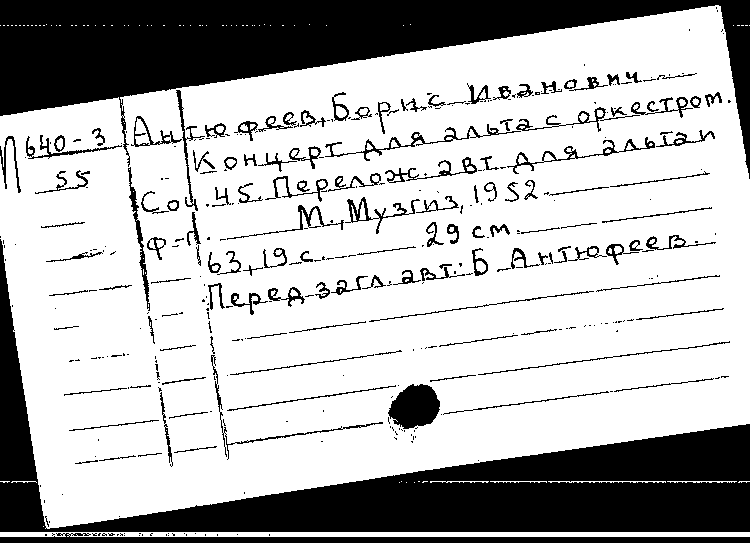 П 640-3
55
Антюфеев, Борис Иванович
Концерт для альта с оркестром.
Соч. 45. Перелож. авт. для альта и
ф-п. М., Музгиз, 1952.
63, 19 с. 29 см.
Перед загл. авт.: Б Антюфеев.